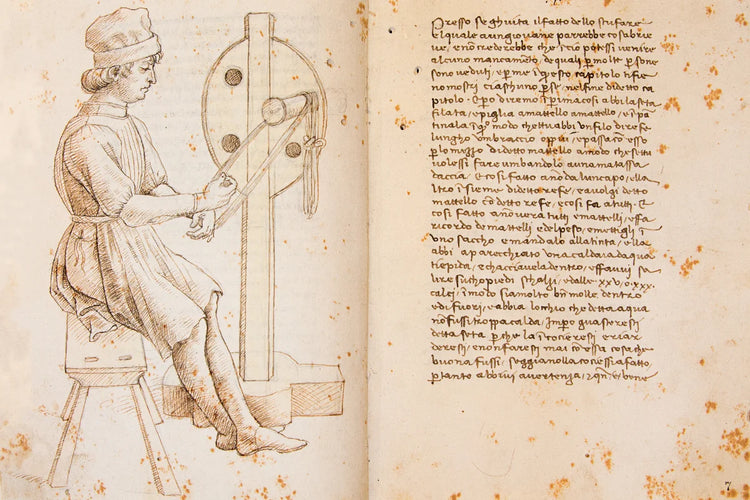 Presso seghuita il fatto dello stufare
El quale aunq giovane parrebbe cosa brie
ve, e non crederebbe che i ciò potessi venire
alcuno mancameto de quali p molte p sone
sono veduti, e p me i questo capitolo ti fie
no nostri ciaschuno p se, nel fine di detto ca
pitolo. E p o diremo i prima cosi abbi la seta
filata, e piglia a mattello a mattello, e i pa
tinala i q° modo che tu abbi un filo di refe
lungho un braccio o p piu, e passa co esso
p lo mezzo di detto mattello a modo che se tu
volessi fare un bandolo a una matassa
daccia. E cosi fatto anoda lun capo, ella
ltro i sieme di detto refe, e avolgi detto
mattello co detto refe, e cosi fa a tutti. E
cosi fatto anoverà tutti e mattelli, e ffa
ricordo de mattelli e del peso, e mettigli i
uno saccho e mandalo alla tinta, e lla
abbi aparecchiato una caldaia daqua
tiepida, e chacciavela dentro, e ffa vi sa
lire su chopiedi schalzi, e dalle xxv, o xxx.
calci, i modo sia molto bn molle dentro
e di fuori, e abbia lochio che detta aqua
non fussi troppa calda, Impo guaseresti
detta seta p che la i coceresi e riar
deresi, e non faresi mai co essa cosa che
buona fussi, seggia nolla cocessi affatto,
p tanto abbivi avertenza, e bene
7